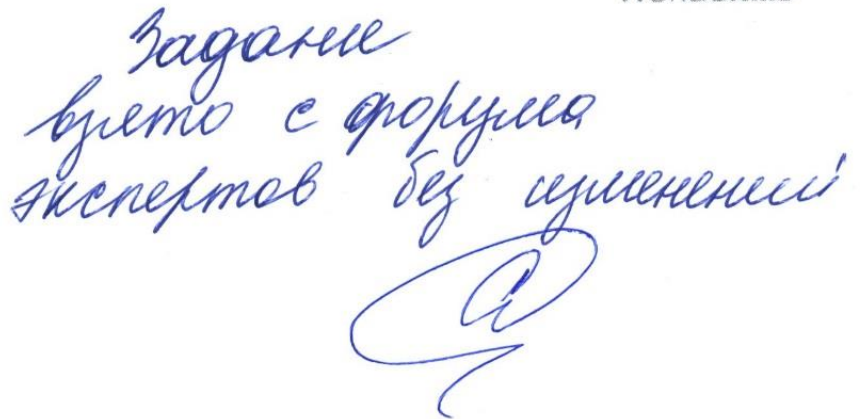 Задание
взято с форума
экспертов без изменений